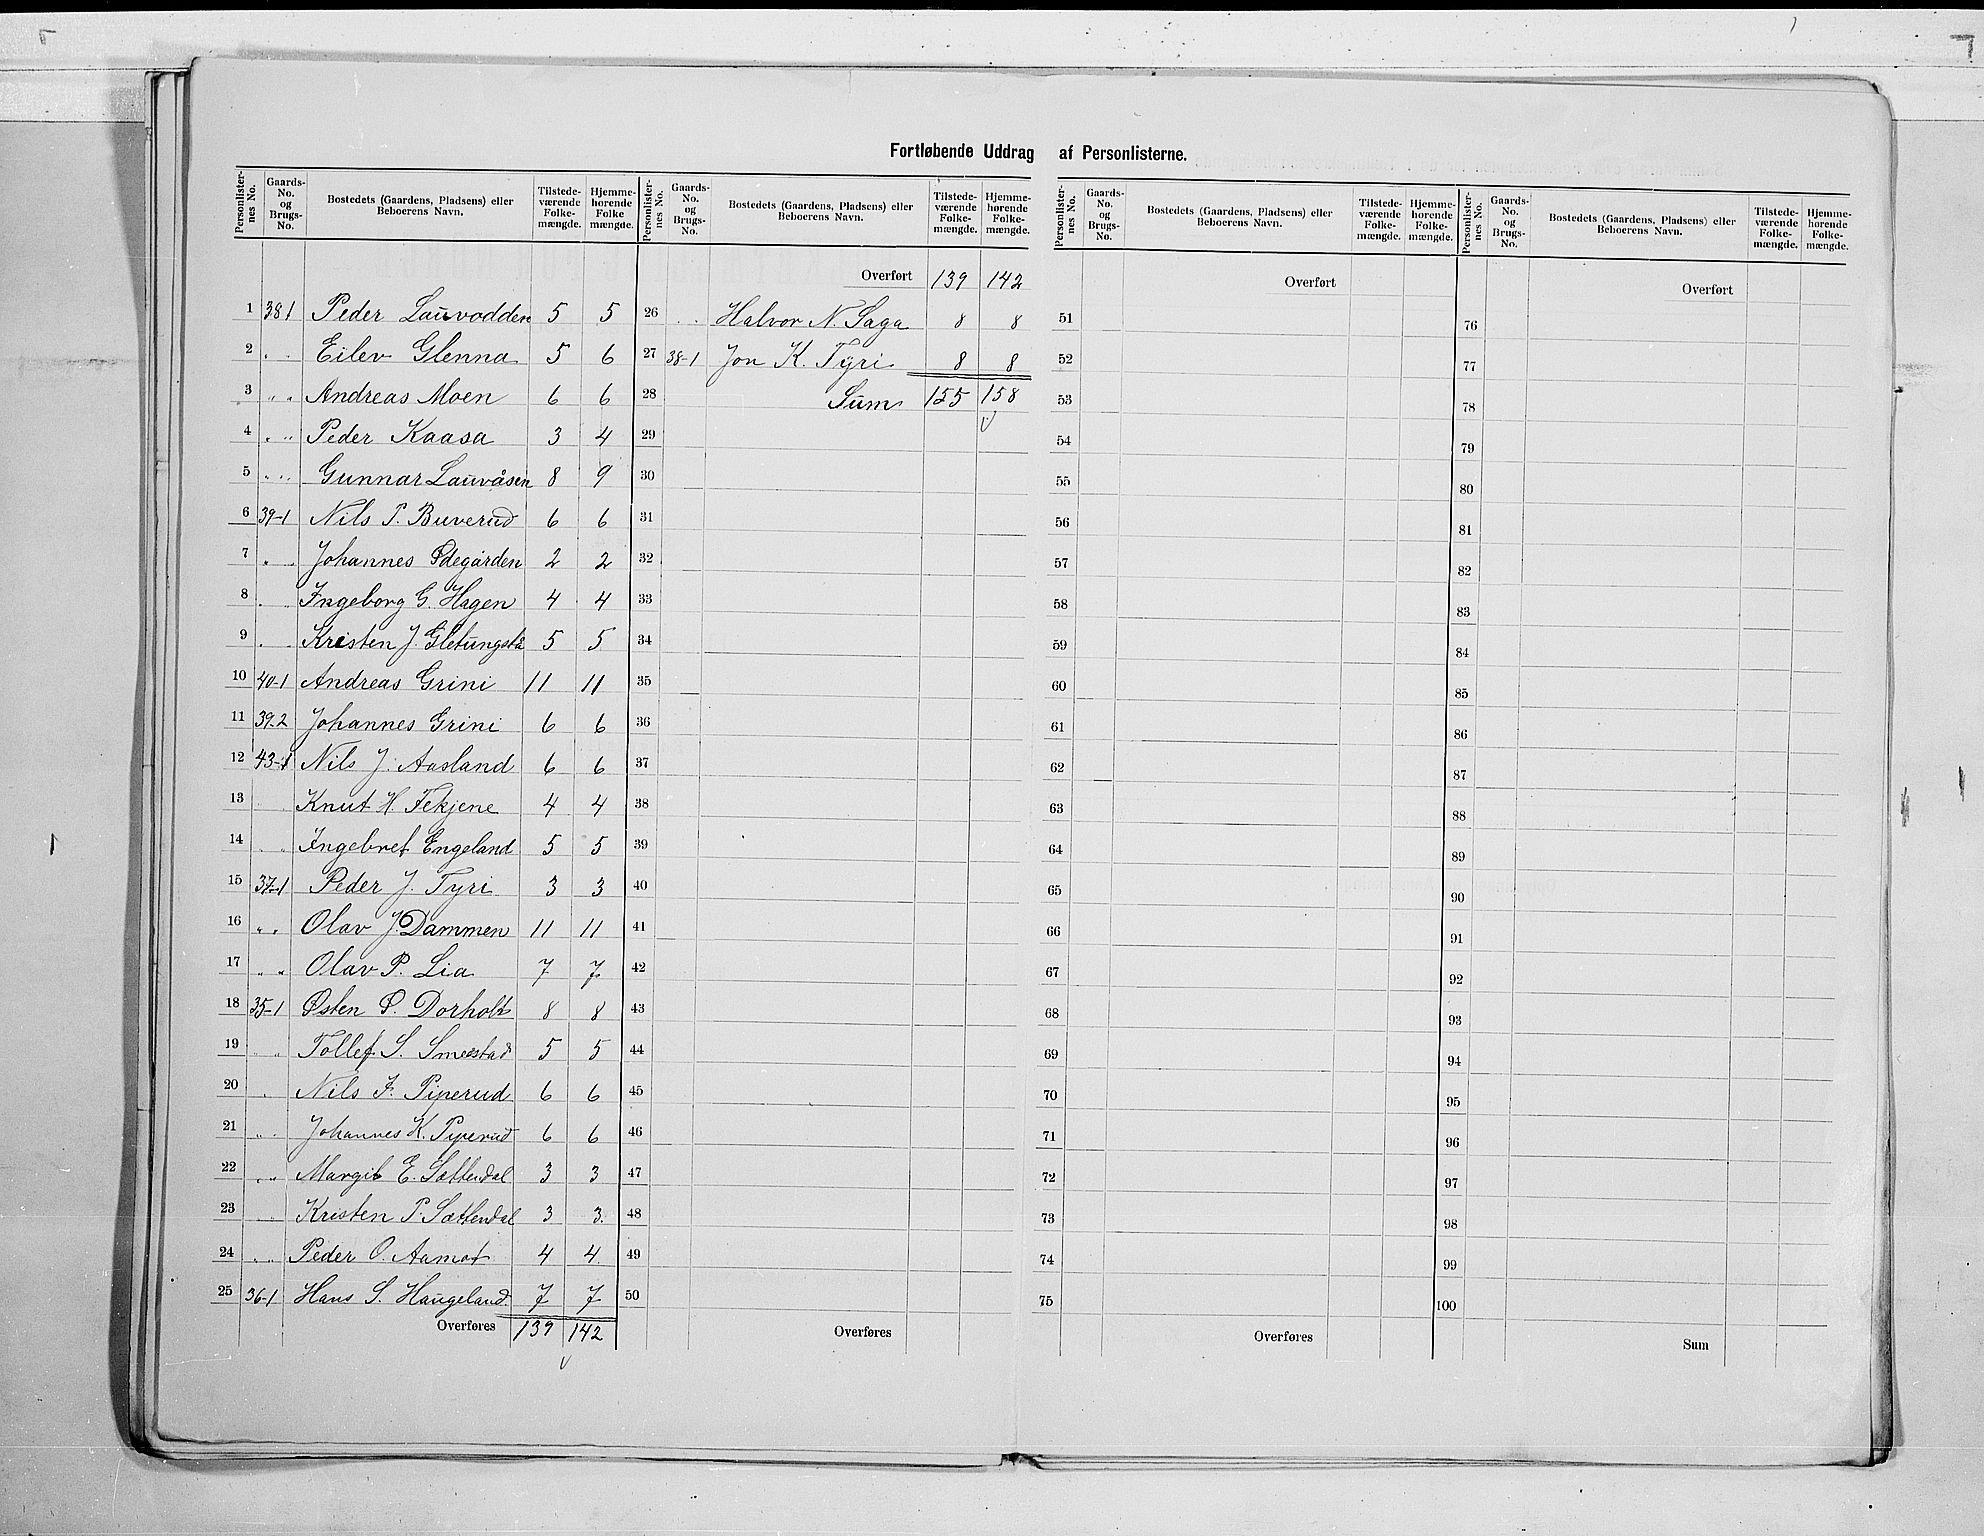 Fortløbende Uddrag af Personlisterne.
Personlister-nes No. Gaards-No. og Brugs-No. Bostedets (Gaardens, Pladsens) eller Beboerens Navn. Tilstede-værende Folke-mængde. Hjemme-hørende Folke mængde.
1 38 1 Peder Lauvodden 5 5
2 „ „ Eilev Glenna 5 6
3 „ „ Andreas Moen 6 6
4 „ „ Peder Kaasa 3 4
5 „ „ Gunnar Lauvåsen 8 9
6 39-1 Nils P. Buverud 6 6
7 „ „ Johannes Ødegården 2 2
8 „ „ Ingeborg G. Hagen 4 4
9 „ „ Kristen J. 5 5
10 40-1 Andreas Grini 11 11
11 39-2 Johannes Grini 6 6
12 43-1 Nils J. Aasland 6 6
13 Knut H. Fekjene 4 4
14 „ „ Ingebret Engeland 5 5
15 37-1 Peder J. Tyri 3 3
16 „ „ Olav J. Dammen 11 11
17 „ „ Olav P. Lia 7 7
18 35-1 Østen P. Dorholt 8 8
19 „ „ Tollef S. Smestad 5 5
20 „ Nils F. Piperud 6 6
21 „ „ Johannes K. Piperud 6 6
22 „ „ Margit E. Sættendal 3 3
23 „ Kristen P. Sættendal 3 3
24 „ „ Peder O. Aamot 4 4
25 36-1 Hans S. Haugeland 7 7
Overføres 139 142
Personlister-nes No. Gaards-No. og Brugs-No. Bostedets (Gaardens, Pladsens) eller Beboerens Navn. Tilstede-værende Folke-mængde. Hjemme-hørende Folke-mængde.
Overført 139 142
26 „ „ Halvor N. Saga 8 8
27 38-1 Jon K. Tyri 8 8
28 Sum 155 158
29
30
31
32
33
34
35
36
37
38
39
40
41
42
43
44
45
46
47
48
49
50
Overføres
Personlister-nes No. Gaards-No. og Brugs-No. Bostedets (Gaardens, Pladsens) eller Beboerens Navn. Tilstede-værende Folke-mængde. Hjemme-hørende Folke-mængde.
Overført
51
52
53
54
55
56
57
58
59
60
61
62
63
64
65
66
67
68
69
70
71
72
73
74
75
Overføres
Personlister-nes No. Gaards-No. og Brugs-No. Bostedets (Gaardens, Pladsens) eller Beboerens Navn. Tilstede-værende Folke-mængde. Hjemme-hørende Folke-mængde.
Overført
76
77
78
79
80
81
82
83
84
85
86
87
88
89
90
91
92
93
94
95
96
97
98
99
100
Sum